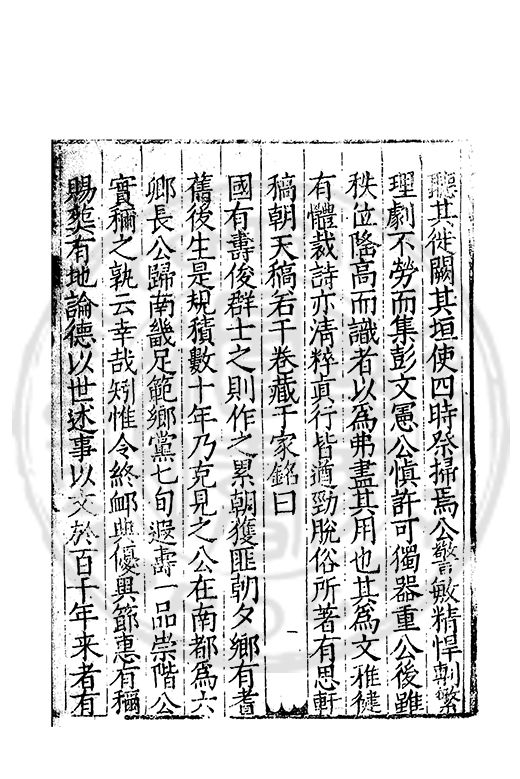 聽其徙闕其垣使四時祭掃焉公警敏精悍剸繁
理劇不勞而集彭文憲公慎許可獨器重公後雖
秩位隆高而識者以為弗盡其用也其為文雅健
有體裁詩亦清粹真行皆遒勁脫俗所著有思軒
稿朝天稿若干卷藏于家銘曰
國有壽俊群士之則作之累朝獲匪朝夕鄉有耆
舊後生是規積數十年乃克見之公在南都為六
卿長公歸南畿足範鄉黨七旬遐壽一品崇階公
實稱之孰云幸哉矧惟令終卹典優異節惠有稱
賜塟有地論德以世述事以文於百十年来者有